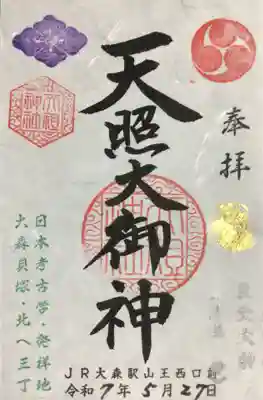 奉拝
天照大御神
日本考古学・発祥地
大森貝塚・北へ三丁
JR大森駅山王西口前
令和7年5月27日